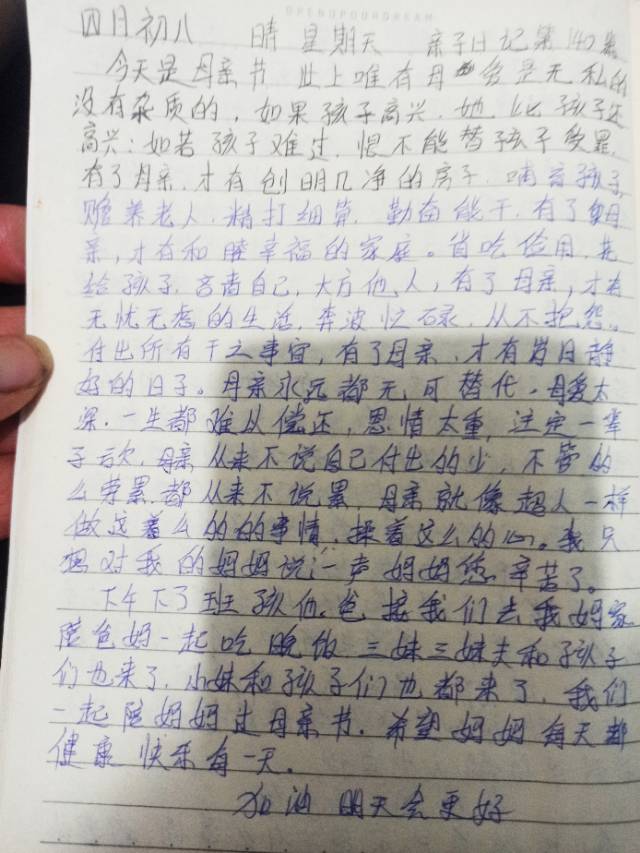 四月初八 晴 星期天 亲子日记第140篇
今天是母亲节 世上唯有母爱是无私的
没有杂质的,如果孩子高兴,她比孩子还
高兴:如若孩子难过,恨不能替孩子受罪,
有了母亲,才有创明几净的房子,哺育孩子,
赡养老人,精打细算,勤奋能干,有了母
亲,才有和睦幸福的家庭。省吃俭用,先
给孩子,吝啬自己,大方他人,有了母亲,才有
无忧无虑的生活,奔波忙碌,从不抱怨。
付出所有干之事宜,有了母亲,才有岁月静
好的日子。母亲永远都无可替代,母爱太
深,一生都难以偿还,恩情太重,注定一辈
子欠,母亲从来不说自己付出的少,不管的
么劳累都从来不说累,母亲就像超人一样
做这着么的的事情,操着这么的心。我只
想对我的妈妈说:一声妈妈您辛苦了。
下午下了班孩他爸接我们去我妈家
陪爸妈一起吃晚饭 三妹三妹夫和孩子
们也来了,小妹和孩子们也都来了,我们
一起陪妈妈过母亲节,希望妈妈每天都
健康快乐每一天。
加油 明天会更好